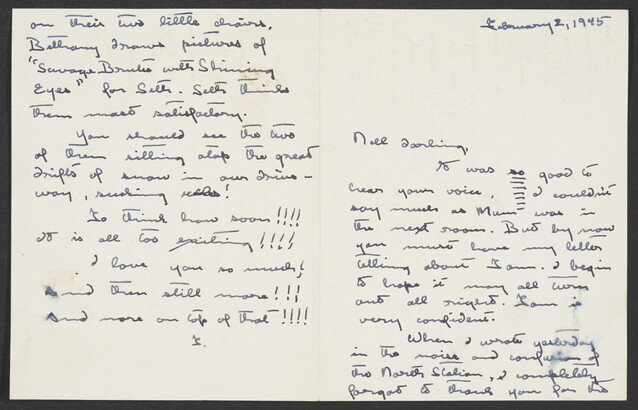 February 2, 1945
Nell darling,
It was so good to
hear your voice, I couldn't
say much as Mum was in
the next room. But by now
you must have my letter
telling about Tam. I begin
to hope it may all turn
out all right. Tam is
very confident.
When I wrote yesterday
in the noise and confusion of
the North Station, I completely
forgot to thank you for the
on their two little chairs.
Bethany draws pictures of
"Savage Brutes with Shining
Eyes" for Seth. Seth thinks
them most satisfactory.
You should see the two
of them sitting atop the great
drifts of snow in our drive-
way, sucking !
To think how soon!!!!
It is all too exciting!!!!
I love you so much!
and then still more!!!
and more on top of that!!!!